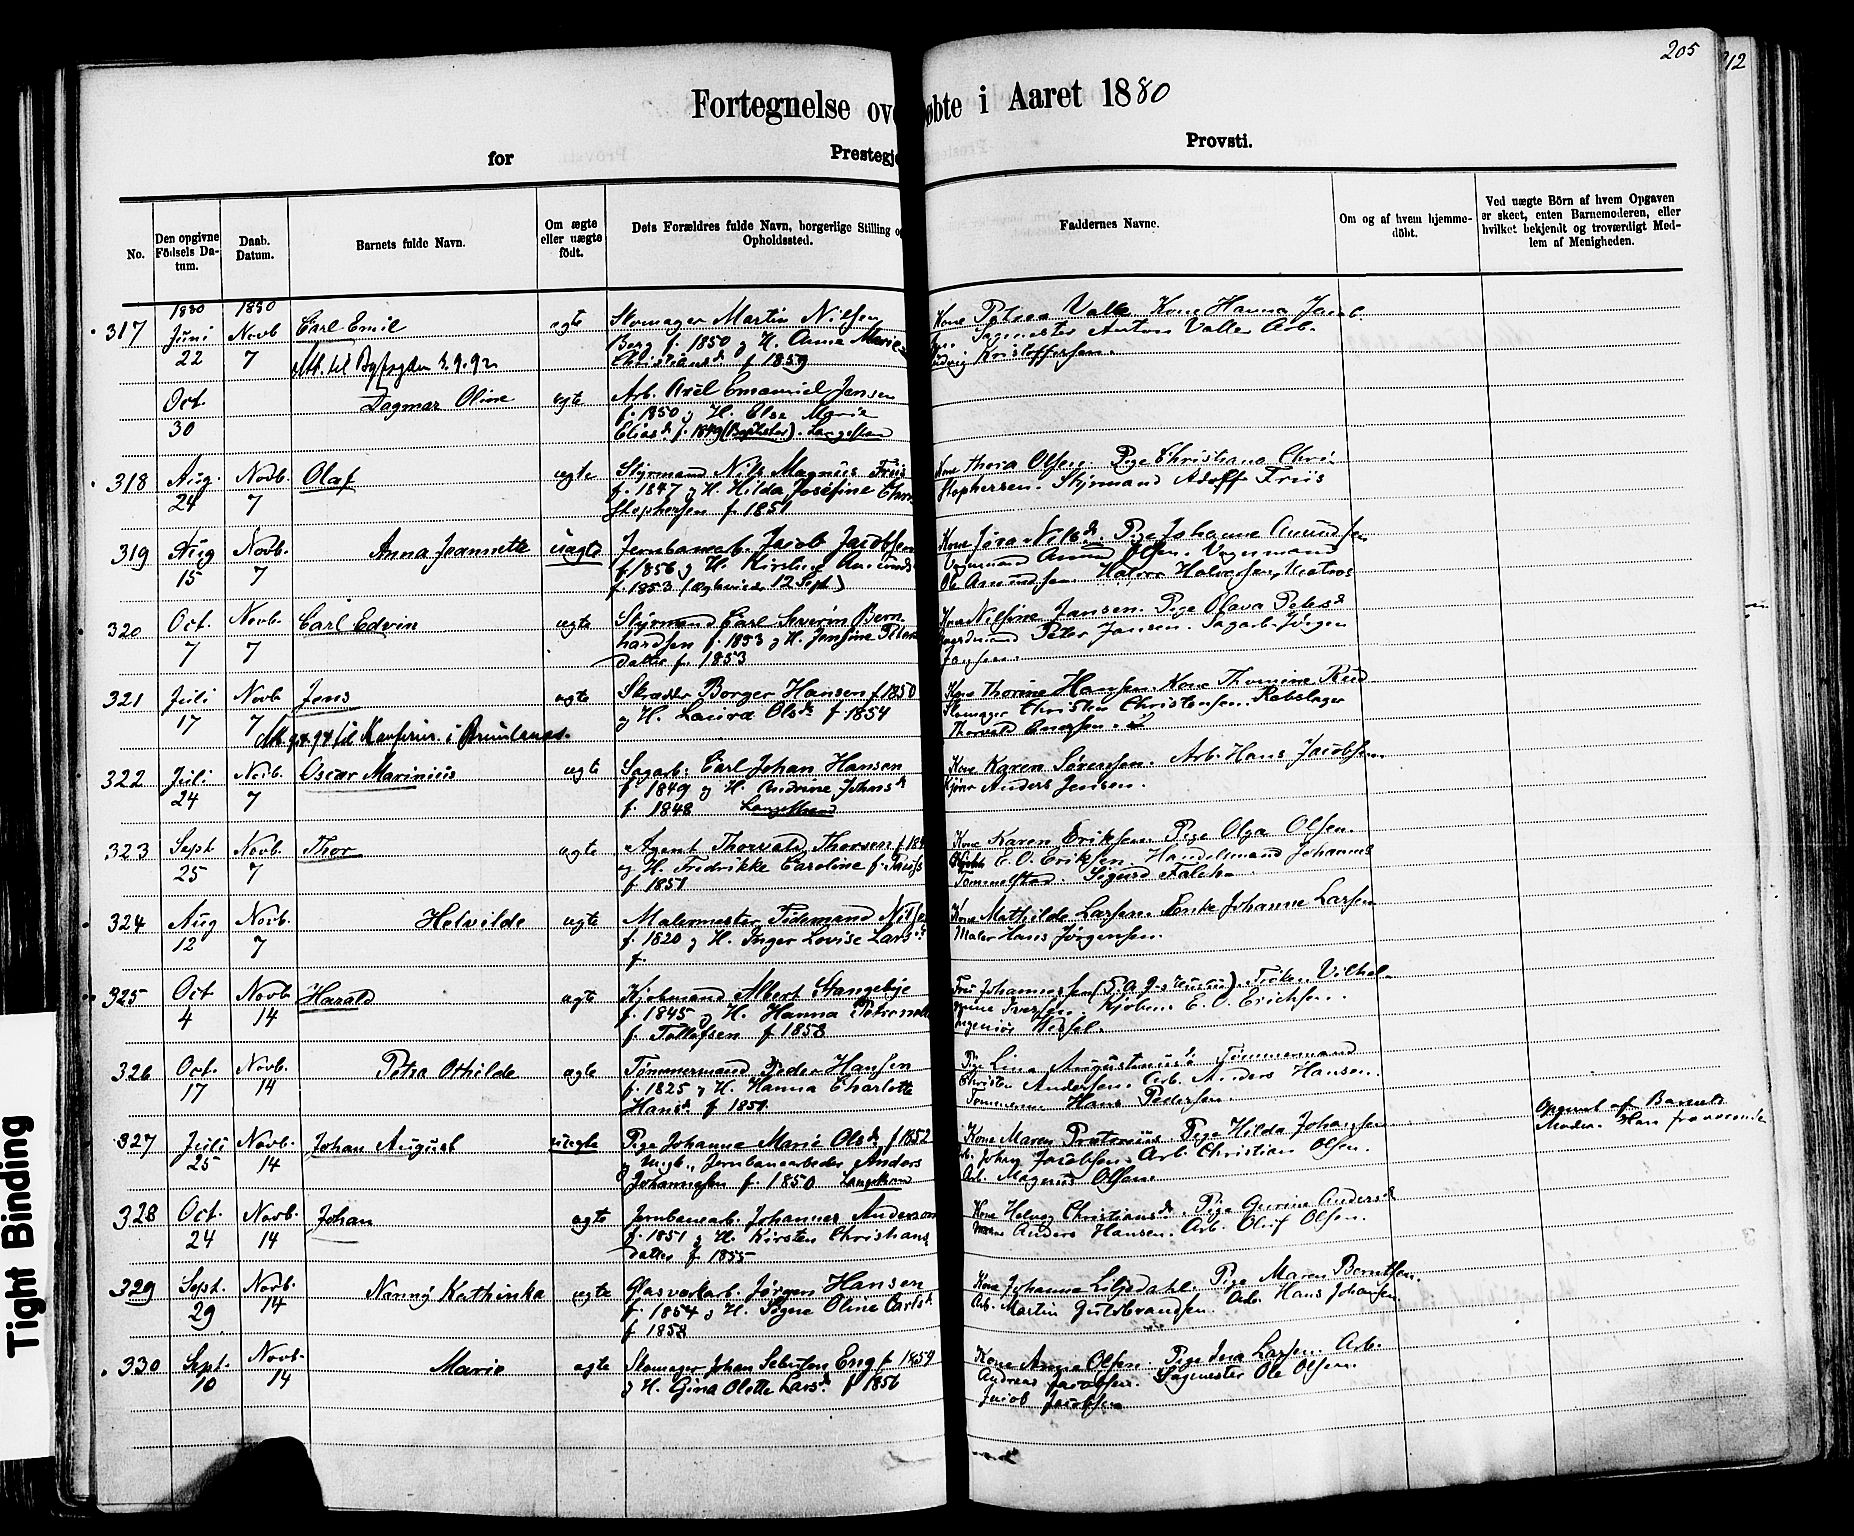 205
212
Fortegnelse ov
öbte i Aaret 1880
for
Prestegje
Provsti.
No.
Den opgivne
Födsels Da-
tum.
Daab.
Datum.
Barnets fulde Navn.
Om ægte
eller uægte
födt.
Dets Forældres fulde Navn, borgerlige Stilling og
Opholdssted.
Faddernes Navne.
Om og af hvem hjemme-
döbt.
Ved uægte Börn af hvem Opgaven
er skeet, enten Barnemoderen, eller
hvilket bekjendt og troværdigt Med-
lem af Menigheden.
1880 1880
317 Juni 22 Novb 7 Carl Emil ægte
Skomager Martin Nilsen
Berg f. 1850 og H. Anna Marie
Christiansd. f 1859
Kone Petrea Valle Kone Hanna Jacob
Sagmester Anton Valle Arb.
Ludvig Kristoffersen.
Att. til Byfogden 9.92
Oct. 30 Dagmar Oline ægte
Arb. Axel Emanuel Jensen
f. 1850 og H. Else Marie
Eliasd. f. 1849 (Baptister). Langestrand
318 Aug. 24 Novb. 7 Olaf ægte
Styrmand Nils Magnus Friis
f. 1847 og H. Hilda Josefine Chri
stophersen f. 1851
Kone Thora Olsen. Pige Christiane Chri
stophersen. Styrmand Adolf Friis
319 Aug 15 Novb. 7 Anna Jeannette uægte
Jernbanearb. Jacob Jacobsen
f 1856 og H. Kirstine Amunds
f. 1853 (Ægteviede 12 Sept)
Pige Johanne Amundsen
Amund Olsen.
Ole Amundsen. Halvor Halvorsen, Matros
320 Oct. 7 Novb. 7 Carl Edvin ægte
Styrmand Carl Severin Bern
hardsen f. 1853 og H. Jensine
datter f. 1853
Kone Nilsine Jansen. Pige Olava Petersd
Peter Jansen. Sagarb. Jörgen
Jansen.
321 Juli 17 Novb 7 Jens ægte
Skrædder Borger Hansen f 1850
og H. Laura Olsd. f 1854
Kone Thorine Hansen. Kone Thomine Rud
Skomager Christen Christensen. Rebslager
Thorvald
322 Juli 24 Novb. 7 Oscar Marinius ægte
Sagarb. Carl Johan Hansen
f. 1849 og H. Andrine Johnsd.
f. 1848 Langestrand
Kone Karen Sørensen. Arb. Hans Jacobsen
Anders Jensen.
323 Sept 25 Novb. 7 Thor ægte
Agent Thorvald Thorsen
og H. Fredrikke Caroline f.
f 1851
Kone Karen Eriksen. Pige Olga Olsen.
E. O. Eriksen. Handelsmand Johannes
Tommelstad. Sigurd
324 Aug 12 Novb. 7 Helvilde ægte
Malermester Tidemand
f. 1820 og H. Inger Lovise Larsd
f.
Kone Mathilde Larsen. Enke Johanne Larsen
Maler Hans Jørgensen.
325 Oct 4 Novb 14 Harald ægte
Kjøbmand Albert Stangebye
f. 1845 og H. Hanna Petronelle
f. Tollefsen f 1858
Fru Johannessen Frøken Vilhel
mine Iversen. Kjøbm. E. O. Erichsen.
Ingeniør
326 Oct. 17 Novb. 14 Petra Othilde ægte
Tømmermand Peder Hansen
f. 1825 og H. Hanna Charlotte
Hansd. f 1851
Pige Lina Augustinusd. Tømmermand
Christen Andersen. Arb. Anders Hansen.
Hans Pedersen.
327 Juli 25 Novb. 14 Johan August uægte
Pige Johanne Marie Olsd. f 1852
og Ungk. Jernbanearbeider Anders
Johannesen f. 1850 Langestran
Kone Maren Pige Hilda Johansen
Arb. Johan Jacobsen. Arb. Christian Olsen.
Arb. Magnus Olsen.
Opgivet af Barnets
Moder. Han fraværende
328 Oct. 24 Novb. 14 Johan ægte
Jernbanearb. Johannes Andersen
f. 1851 og H. Kirsten Christians
datter f 1855
Kone Helvig Christiansd. Pige Gurine Andersd.
Anders Hansen. Arb. Oluf Olsen.
329 Sept. 29 Novb. 14 Nanny Kathinka ægte
Glasværkarb. Jørgen Hansen
f. 1854 og H. Signe Oline Carlsd
f 1858
Kone Johanne Liljedahl. Pige Maren Berntsen.
Arb. Martin Guldbrandsen. Arb. Hans Johansen
330 Sept. 10 Novb. 14 Marie ægte
Skomager Johan Eng f 1859
og H. Gina Olette Larsd. f 1856
Kone Anna Olsen. Pige Larsen. Arb.
Andreas Jacobsen. Sagmester Ole Olsen.
Jacob Jacobsen
Tight Binding